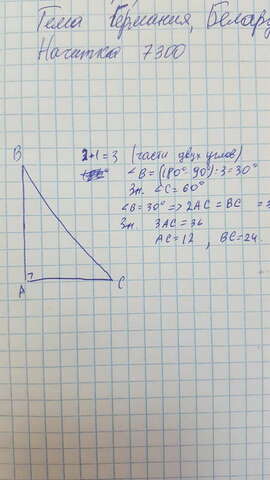 Тема Германия, Белару
Начатки 7300
2+1=3 (части двух углов)
∠B=(180°-90°):3=30°
Зн. ∠C=60°
∠B=30° => 2AC=BC =>
Зн. 3AC=36
AC=12, BC=24.
B
A
C